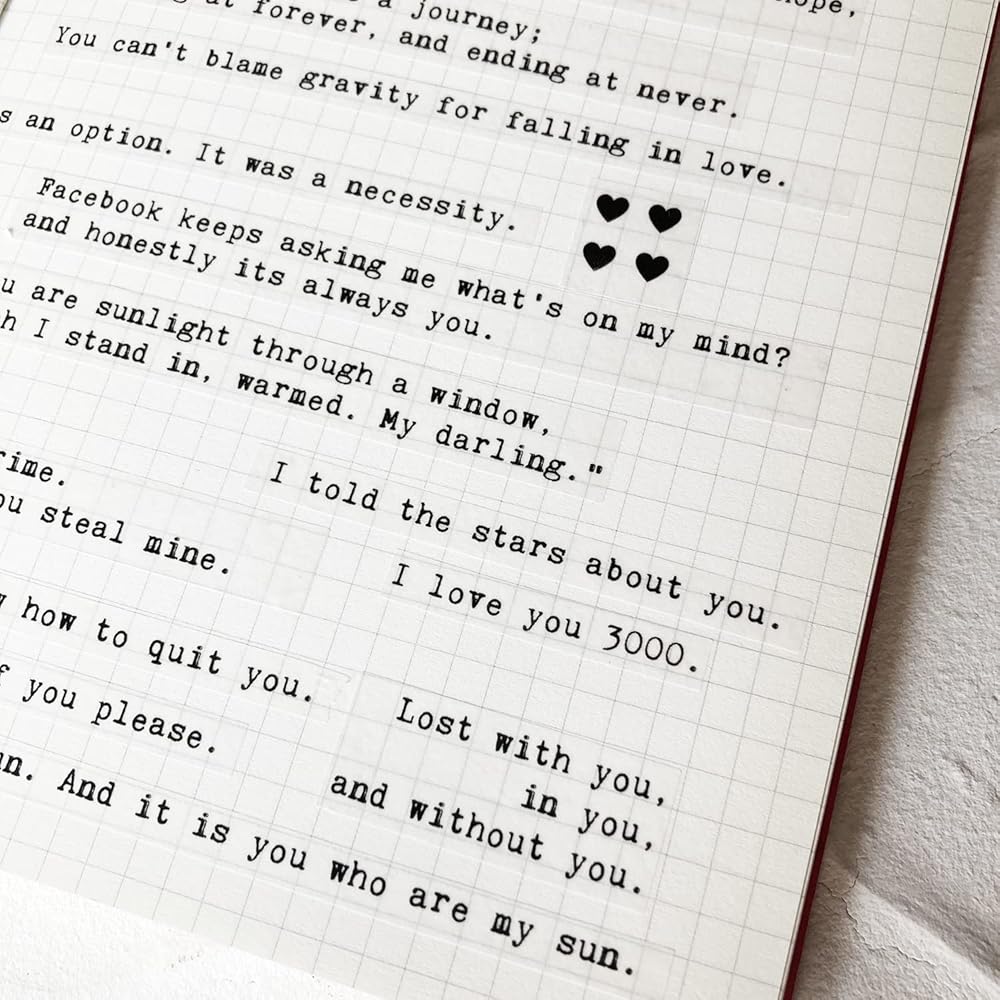 a journey;
forever, and ending at never.
You can't blame gravity for falling in love.
an option. It was a necessity.
Facebook keeps asking me what's on my mind?
and honestly its always you.
are sunlight through a window,
I stand in, warmed. My darling."
steal mine.
I told the stars about you.
I love you 3000.
how to quit you.
you please.
Lost with you,
in you,
and without you.
And it is you who are my sun.